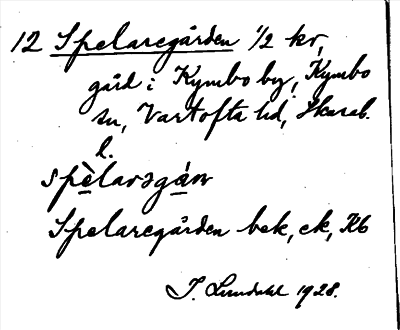 12 Spelaregården 1/2 kr,
gård i Kymbo by, Kymbo
sn, Vartofta hd, Skarab.
l.
spèlarəgán
Spelaregården bek, ek, Kb
I. Lundahl 1928.